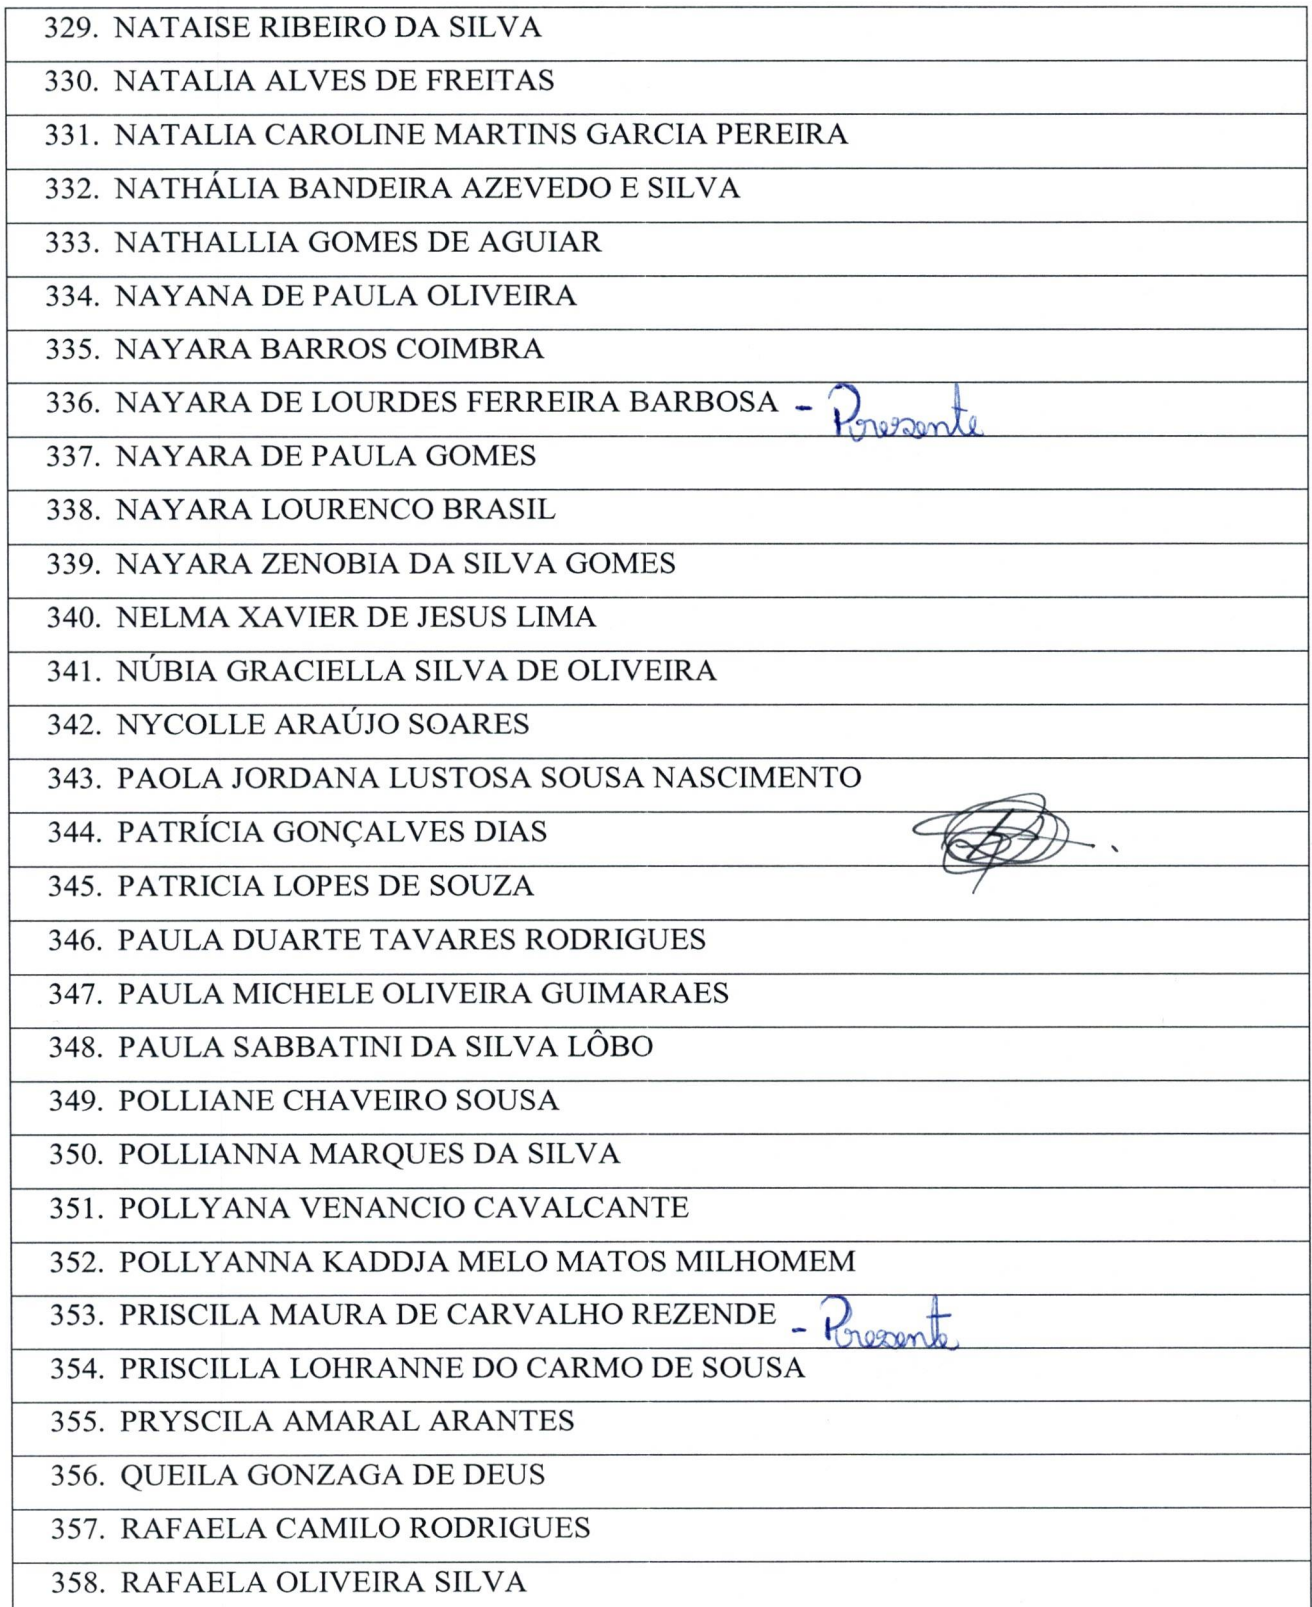 329. NATAISE RIBEIRO DA SILVA
330. NATALIA ALVES DE FREITAS
331. NATALIA CAROLINE MARTINS GARCIA PEREIRA
332. NATHÁLIA BANDEIRA AZEVEDO E SILVA
333. NATHALLIA GOMES DE AGUIAR
334. NAYANA DE PAULA OLIVEIRA
335. NAYARA BARROS COIMBRA
336. NAYARA DE LOURDES FERREIRA BARBOSA - Presente
337. NAYARA DE PAULA GOMES
338. NAYARA LOURENCO BRASIL
339. NAYARA ZENOBIA DA SILVA GOMES
340. NELMA XAVIER DE JESUS LIMA
341. NÚBIA GRACIELLA SILVA DE OLIVEIRA
342. NYCOLLE ARAÚJO SOARES
343. PAOLA JORDANA LUSTOSA SOUSA NASCIMENTO
344. PATRÍCIA GONÇALVES DIAS
345. PATRICIA LOPES DE SOUZA
346. PAULA DUARTE TAVARES RODRIGUES
347. PAULA MICHELE OLIVEIRA GUIMARAES
348. PAULA SABBATINI DA SILVA LÔBO
349. POLLIANE CHAVEIRO SOUSA
350. POLLIANNA MARQUES DA SILVA
351. POLLYANA VENANCIO CAVALCANTE
352. POLLYANNA KADDJA MELO MATOS MILHOMEM
353. PRISCILA MAURA DE CARVALHO REZENDE - Presente
354. PRISCILLA LOHRANNE DO CARMO DE SOUSA
355. PRYSCILA AMARAL ARANTES
356. QUEILA GONZAGA DE DEUS
357. RAFAELA CAMILO RODRIGUES
358. RAFAELA OLIVEIRA SILVA